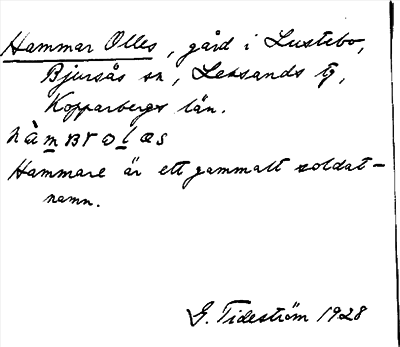 Hammar Olles, gård i Lustebo,
Bjursås sn, Leksands tg,
Kopparbergs län.
Hammare är ett gammalt soldat-
namn.
G. Tideström 1928